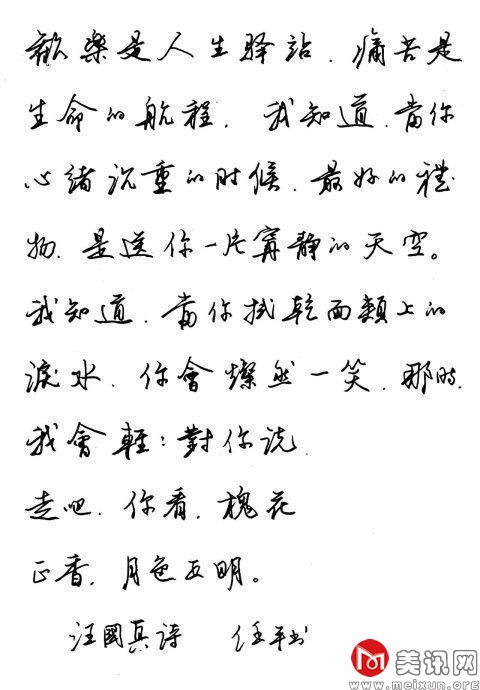 歡樂是人生驿站，痛苦是
生命的航程，我知道，當你
心绪沉重的时候，最好的禮
物，是送你一片寜静的天空。
我知道，當你拭乾面頰上的
淚水，你會燦然一笑，那时，
我會輕：對你说，
走吧，你看，槐花
正香，月色正明。
汪國真诗 任平书
美讯网
www.meixun.org